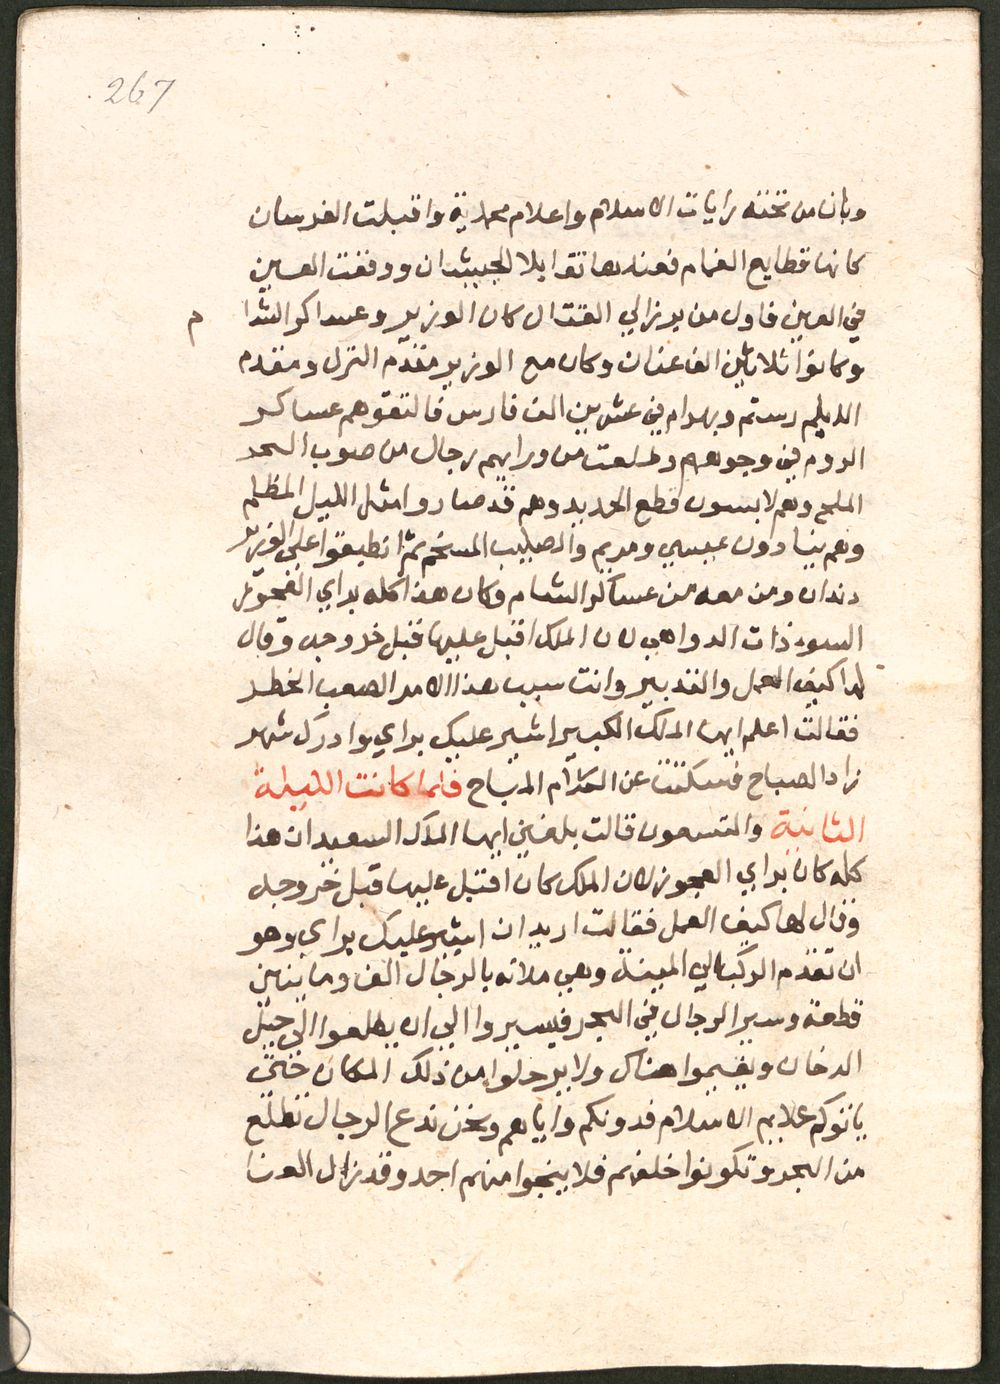 267
وبان من تحته رايات الاسلام واعلام محمدية واقبلت الفرسان
كانها قطايع الغمام فعندها تقابلا الجيشان ووقفت العين
في العين فاول من برز الي القتال كان الوزير وعساكر الشا م
وكانوا ثلاثين الف عنان وكان مع الوزير مقدم الترك ومقدم
الديلم رستم وبهرام في عشرين الف فارس فالتقوهم عساكر
الروم في وجوههم وطلعت من ورايهم رجال من صوب البحر
الملح وهم لابسون قطع الحديد وهم قد صاروا مثل الليل المظلم
وهم ينادون عيسي ومريم والصليب المسخم ثم انطبقوا علي الوزير
دندان ومن معه من عساكر الشام وكان هذا كله براي العجوز
السوء ذات الدواهي لان الملك اقبل عليها قبل خروجه وقال
لها كيف العمل والتدبير وانت سبب هذا الامر الصعب الخطر
فقالت اعلم ايها الملك الكبير اشير عليك براي وادرك شهر
زاد الصباح فسكتت عن الكلام المباح فلما كانت الليلة
الثانية والتسعون قالت بلغني ايها الملك السعيد ان هذا
كله كان براي العجوز لان الملك كان اقبل عليها قبل خروجه
وقال لها كيف العمل فقالت اريد ان اشير عليك براي وهو
ان تقدم المركب الي المينة وهي ملانه بالرجال الف ومايتين
قطعة وسير الرجال في البحر فيسيروا الي ان يطلعوا الي جبل
الدخان ويقيموا هناك ولا يرحلوا من ذلك المكان حتي
ياتوكم علايم الاسلام فدونكم واياهم ونحن ندع الرجال تطلع
من البحر وتكونوا خلفهم فلا ينجوا منهم احد وقد زال العنا